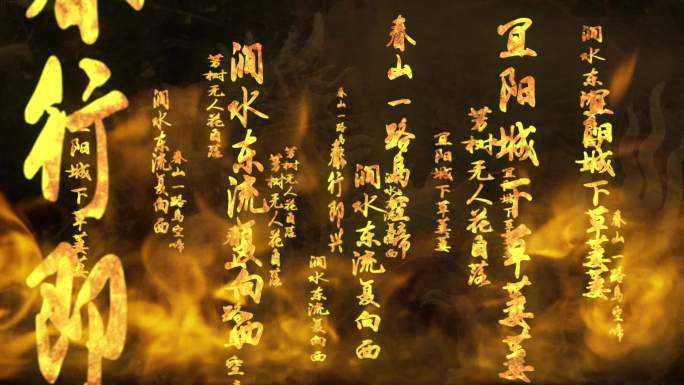 春行即
宜阳城下草萋萋
涧水东流复向西
春山一路鸟空啼
芳树无人花自落
涧水东流复向西
芳树无人花自落
芳树无人花自落
涧水东流复向西
春山一路
春行即兴
涧水东流复向西
春山一路鸟空啼
宜阳城下草萋萋
芳树无人花自落
宜阳城下草萋萋
宜阳城下草萋萋
涧水东
宜阳城下草萋萋
春山一路鸟空啼